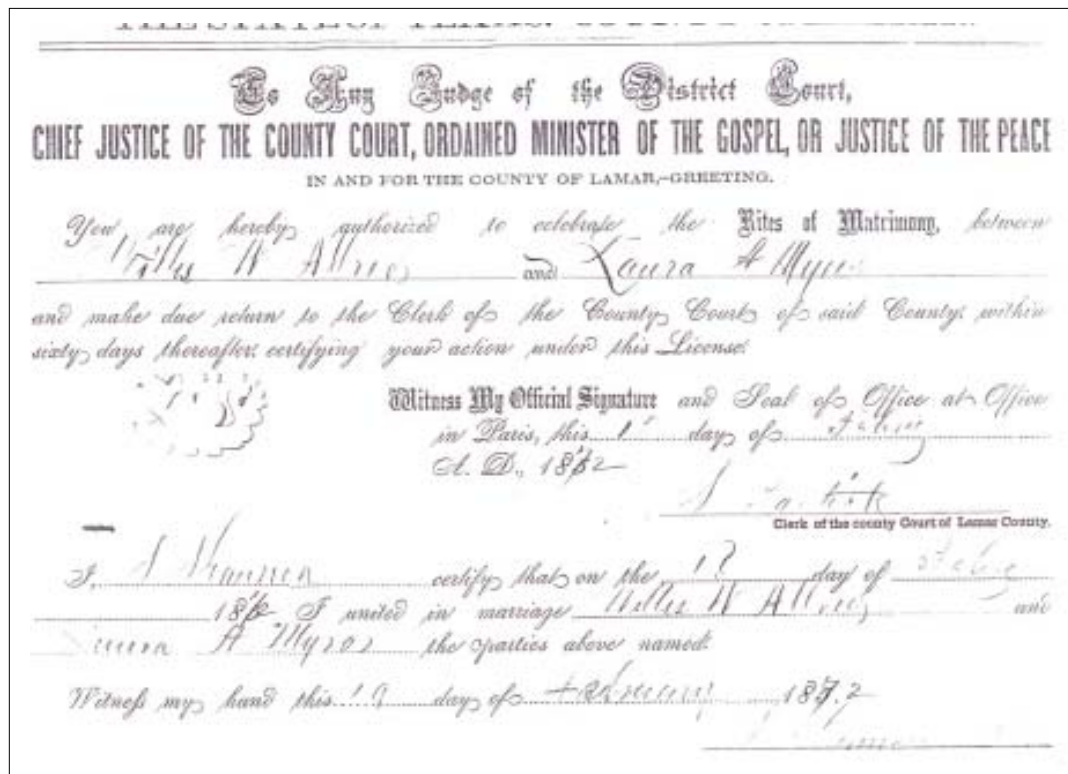 THE STATE OF TEXAS. COUNTY
To Any Judge of the District Court,
CHIEF JUSTICE OF THE COUNTY COURT, ORDAINED MINISTER OF THE GOSPEL, OR JUSTICE OF THE PEACE
IN AND FOR THE COUNTY OF LAMAR,—GREETING.
You are hereby authorized to celebrate the Rites of Matrimony, between
Willes W and Laura A
and make due return to the Clerk of the County Court of said County, within
sixty days thereafter, certifying your action under this License.
Witness My Official Signature and Seal of Office at Office
in Paris, this day of
A. D., 1872
Clerk of the county Court of Lamar County.
I, certify that on the day of
I united in marriage Willes W and
A the parties above named.
Witness my hand this day of February 1872